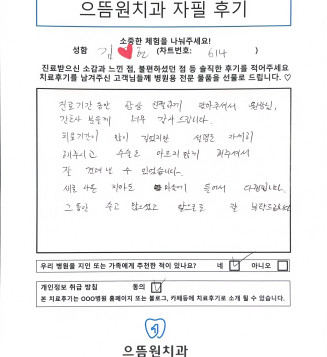 으뜸원치과 자필 후기
소중한 체험을 나눠주세요!
성함 김❤현 (차트번호: 614 )
진료받으신 소감과 느낀 점, 불편하셨던 점 등 솔직한 후기를 적어주세요
치료후기를 남겨주신 고객님들께 병원용 전문 물품을 선물로 드립니다. ♡
진료기간 동안 항상 친절하게 맞아주셔서 원장님,
간호사 분들께 너무 감사드립니다.
치료기간이 많이 길었지만 설명도 자세히
해주시고 수술도 아프지 않게 해주셔서
잘 견뎌 낼 수 있었습니다.
새로 나온 치아도 마음에 들어서 다행입니다.
그동안 수고 많으셨고 앞으로도 잘 부탁드려요
우리 병원을 지인 또는 가족에게 추천한 적이 있나요? 네 ☑ 아니오 ☐
개인정보 취급 방침 동의 ☑
본 치료후기는 OOO병원 홈페이지 또는 블로그, 카페등에 치료후기로 소개 될 수 있습니다.
으뜸원치과